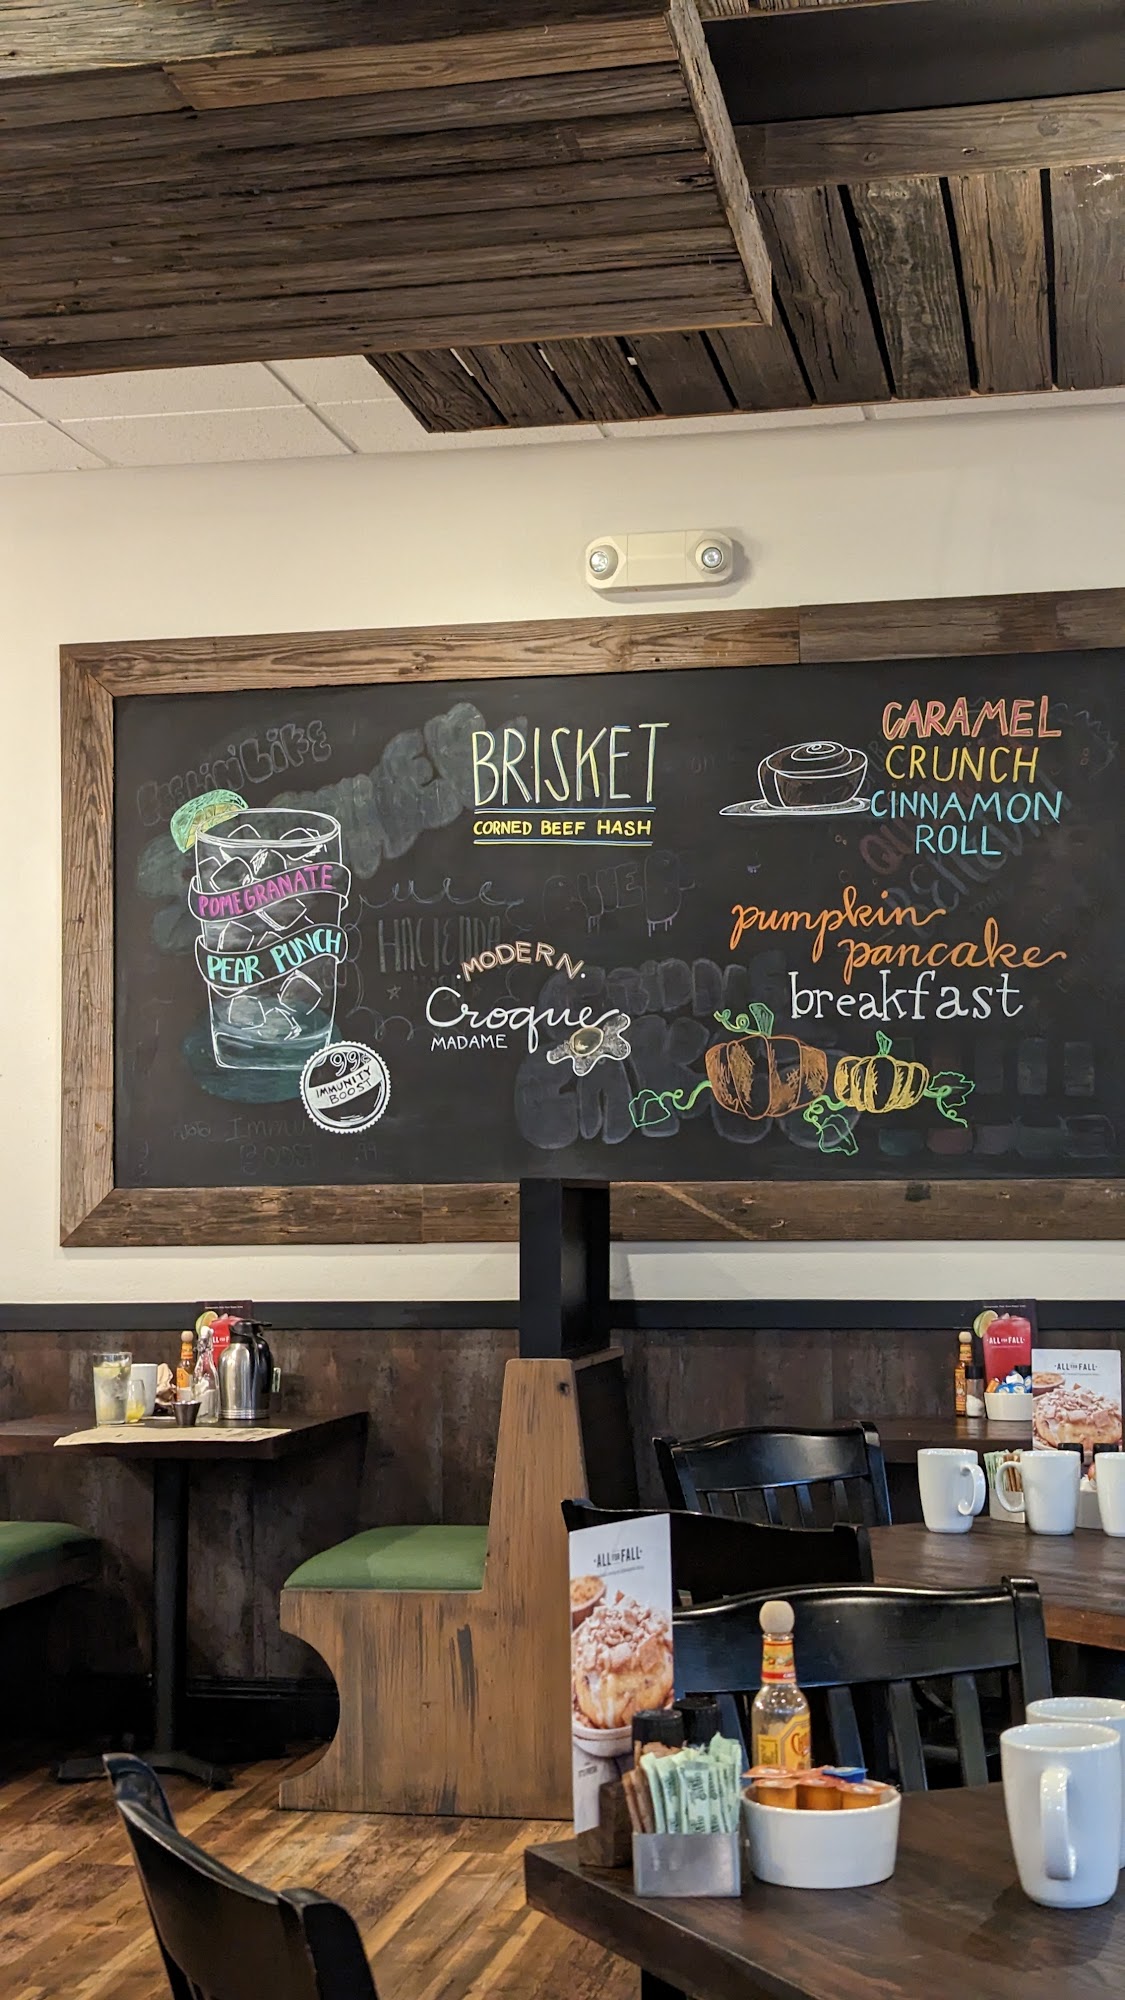 POMEGRANATE
PEAR PUNCH
99¢
IMMUNITY
BOOST
BRISKET
CORNED BEEF HASH
·MODERN·
Croque
MADAME
CARAMEL
CRUNCH
CINNAMON
ROLL
pumpkin
pancake
breakfast
HACIENDA
·ALL FOR FALL·
·ALL FOR FALL·
·ALL FOR FALL·